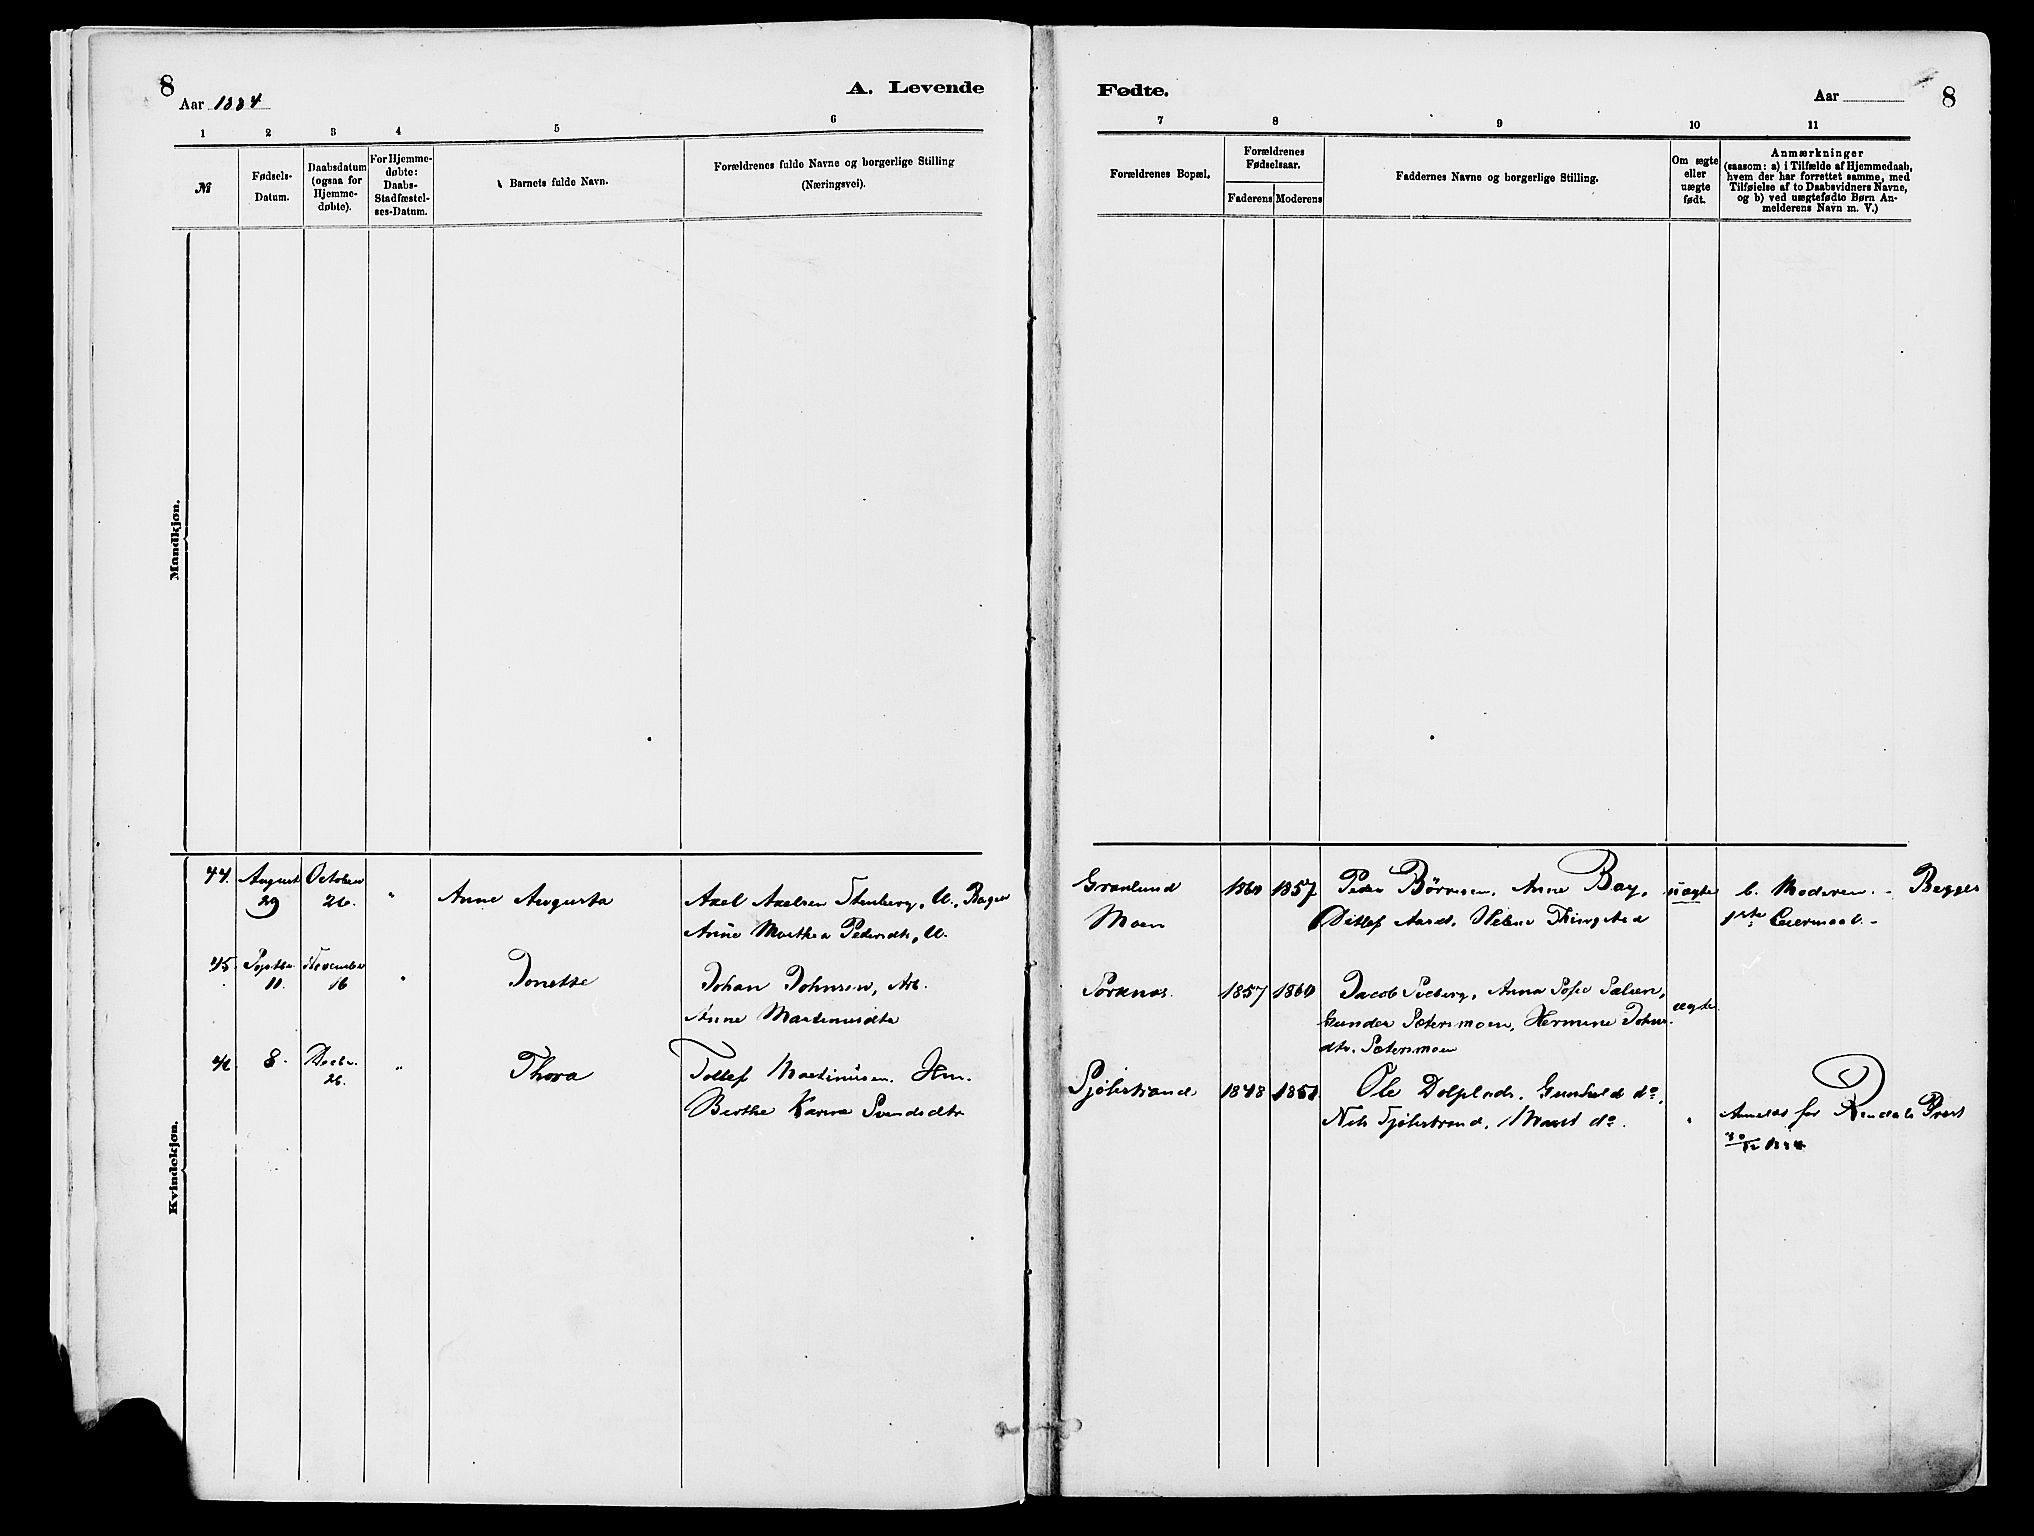 8
Aar 1884
A. Levende
1 2 3 4 5 6
№
Fødsels-
Datum.
Daabsdatum
(ogsaa for
Hjemme-
døbte).
For Hjemme-
døbte:
Daabs-
Stadfæstel-
ses-Datum.
Barnets fulde Navn.
Forældrenes fulde Navne og borgerlige Stilling
(Næringsvei).
Mandkjøn.
Kvindekjøn.
44. August October " Anne Augusta Axel Axelsen Stenberg, U., Bager
29 26. Anne Marthea Pedersdtr, U.
45. Septbr. November " Jonette Johan Johnsen, Arb.
11. 16 Anne Martinusdtr
46. 8. Decbr. " Thora Tollef Martinusen, Hm.
26. Berthe Karine Svendsdtr
Fødte.
Aar
8
7 8 9 10 11
Forældrenes Bopæl.
Forældrenes
Fødselsaar.
Faderens Moderens
Faddernes Navne og borgerlige Stilling.
Om ægte
eller
uægte
født.
Anmærkninger
(saasom: a) i Tilfælde af Hjemmedaab,
hvem der har forrettet samme, med
Tilføielse af to Daabsvidners Navne,
og b) ved uægtefødte Børn An-
melderens Navn m. V.)
Grønlund 1860 1857 Peder Børresen, Anne Bay, uægte b. Moderen. - Begges
Moen Ditlef Aard, Helene Thingstad 1ste Leiermaal. -
Sorknæs. 1857 1860 Jacob Soberg, Anna Sofie
Gunder Sætersmoen, Hermine Johns
dtr. Sætersmoen
ægte
Sjølistrand 1848 1851 Ole Gunhild do,
Nils Sjølistrand, Marit do. " Anmeldt for Rendals Prest
30/12 1884